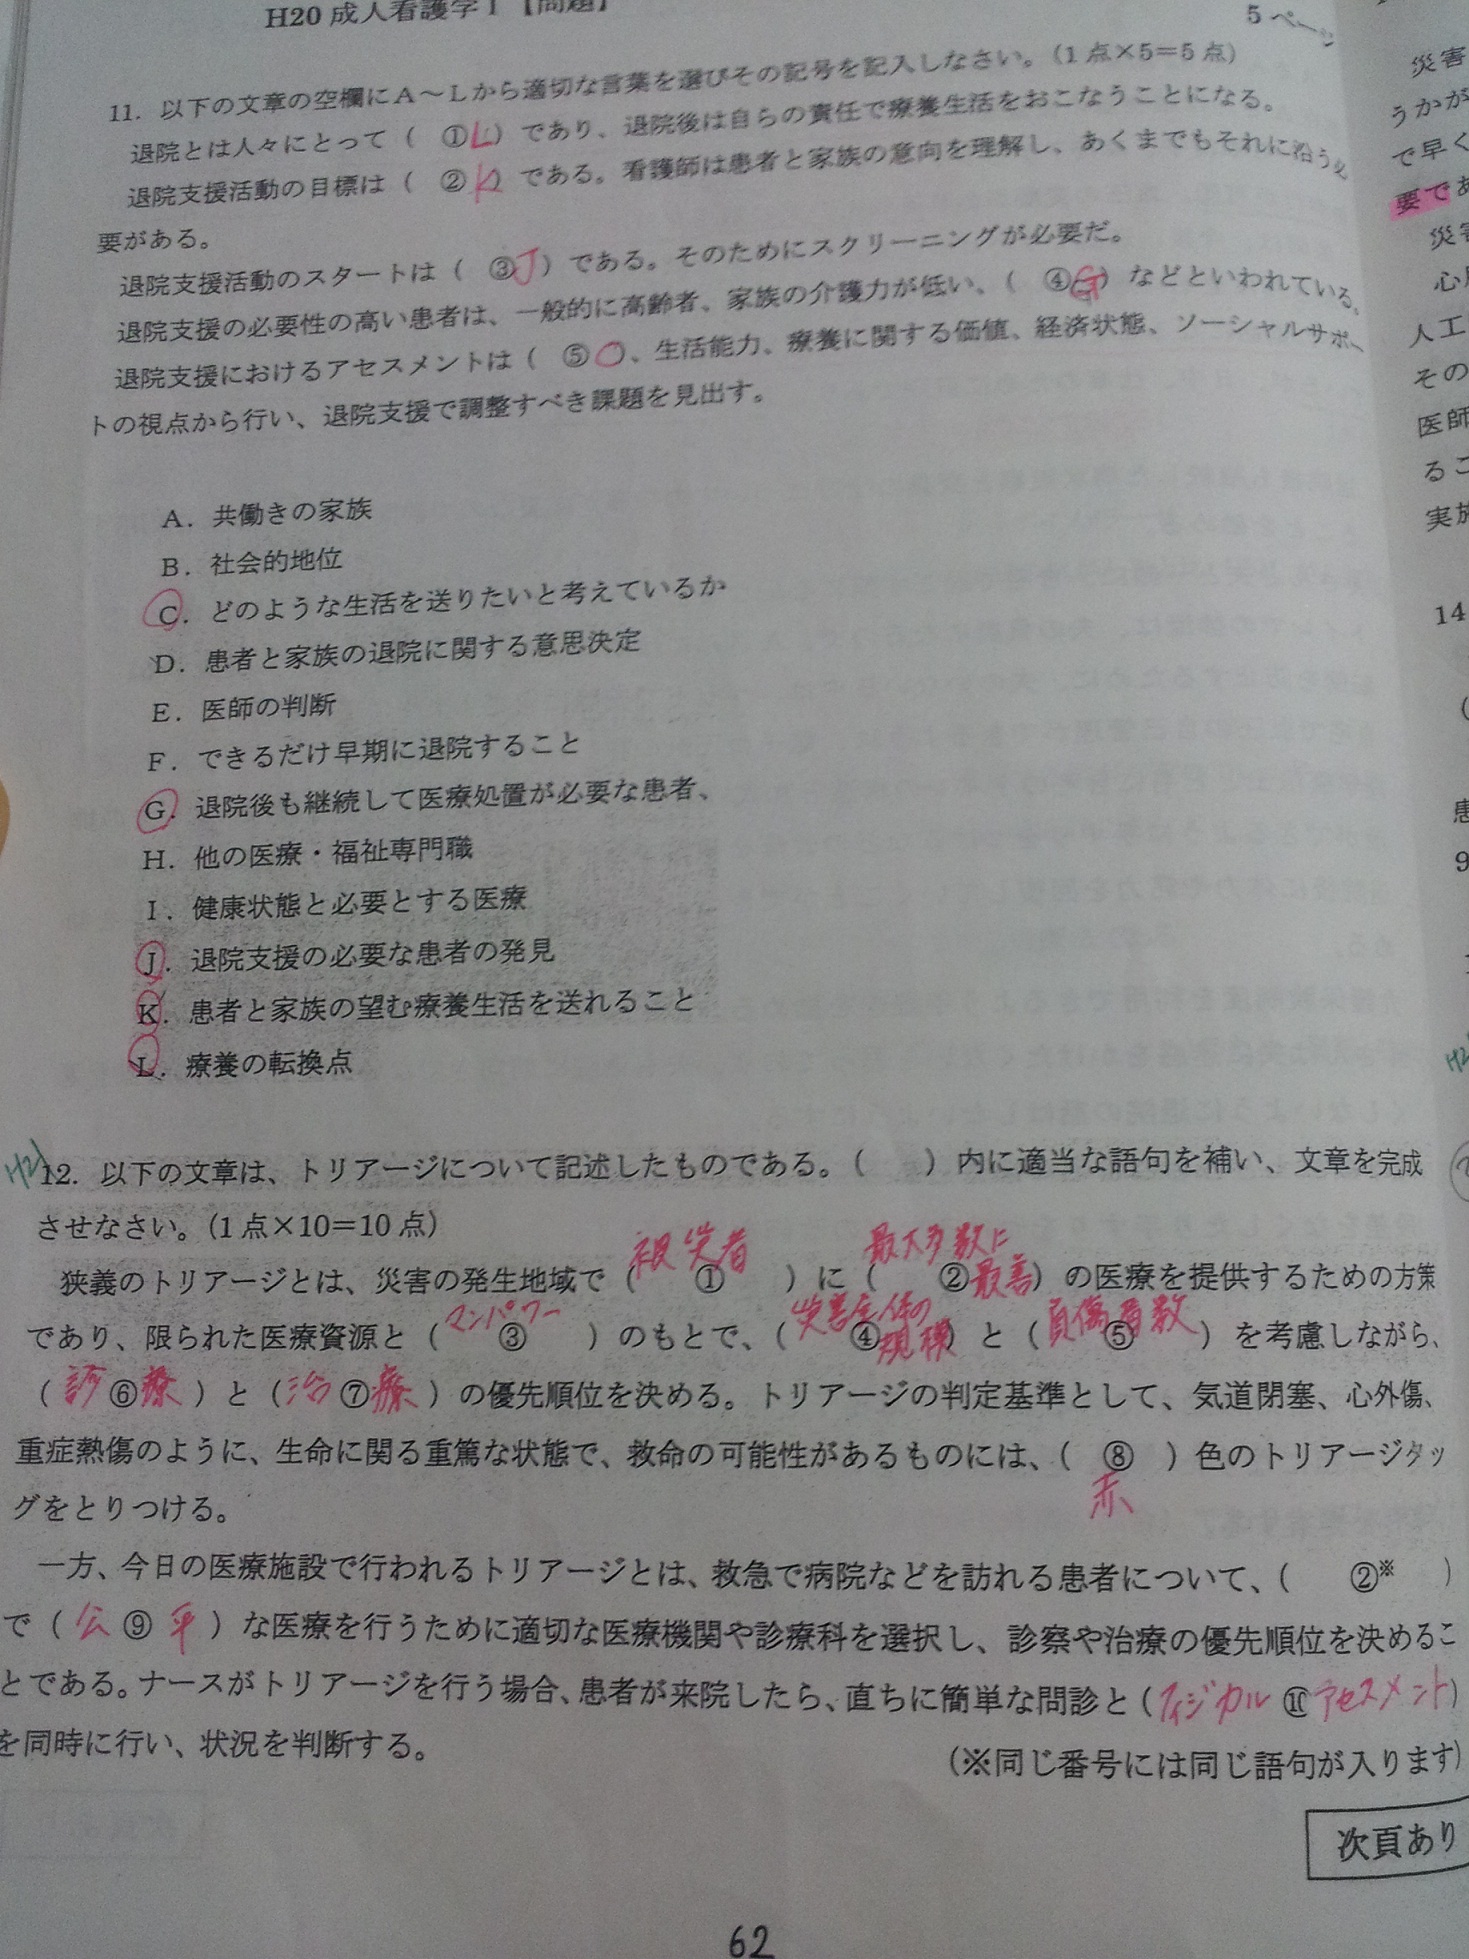 H20 成人看護学Ⅰ【問題】
5 ページ
11. 以下の文章の空欄にA～Lから適切な言葉を選びその記号を記入しなさい。(1点×5=5点)
退院とは人々にとって( ①L)であり、退院後は自らの責任で療養生活をおこなうことになる。
退院支援活動の目標は( ②K)である。看護師は患者と家族の意向を理解し、あくまでもそれに沿う必
要がある。
退院支援活動のスタートは( ③J)である。そのためにスクリーニングが必要だ。
退院支援の必要性の高い患者は、一般的に高齢者、家族の介護力が低い、( ④G)などといわれている。
退院支援におけるアセスメントは( ⑤ )、生活能力、療養に関する価値、経済状態、ソーシャルサポー
トの視点から行い、退院支援で調整すべき課題を見出す。
A. 共働きの家族
B. 社会的地位
C. どのような生活を送りたいと考えているか
D. 患者と家族の退院に関する意思決定
E. 医師の判断
F. できるだけ早期に退院すること
G. 退院後も継続して医療処置が必要な患者、
H. 他の医療・福祉専門職
I. 健康状態と必要とする医療
J. 退院支援の必要な患者の発見
K. 患者と家族の望む療養生活を送れること
L. 療養の転換点
H21
12. 以下の文章は、トリアージについて記述したものである。( )内に適当な語句を補い、文章を完成
させなさい。(1点×10=10点)
被災者 最大多数に
狭義のトリアージとは、災害の発生地域で( ① )に( ②最善)の医療を提供するための方策
マンパワー 災害全体の 負傷者数
であり、限られた医療資源と( ③ )のもとで、( ④規模)と( ⑤ )を考慮しながら、
(診⑥療)と(治⑦療)の優先順位を決める。トリアージの判定基準として、気道閉塞、心外傷、
重症熱傷のように、生命に関る重篤な状態で、救命の可能性があるものには、( ⑧ )色のトリアージタッ
赤
グをとりつける。
一方、今日の医療施設で行われるトリアージとは、救急で病院などを訪れる患者について、( ②※ )
で(公⑨平)な医療を行うために適切な医療機関や診療科を選択し、診察や治療の優先順位を決めるこ
とである。ナースがトリアージを行う場合、患者が来院したら、直ちに簡単な問診と(フィジカル⑩アセスメント)
を同時に行い、状況を判断する。
(※同じ番号には同じ語句が入ります)
次頁あり
62
災害
うかが
で早く
要であ
災害
人工
その
医師
るこ
実施
14